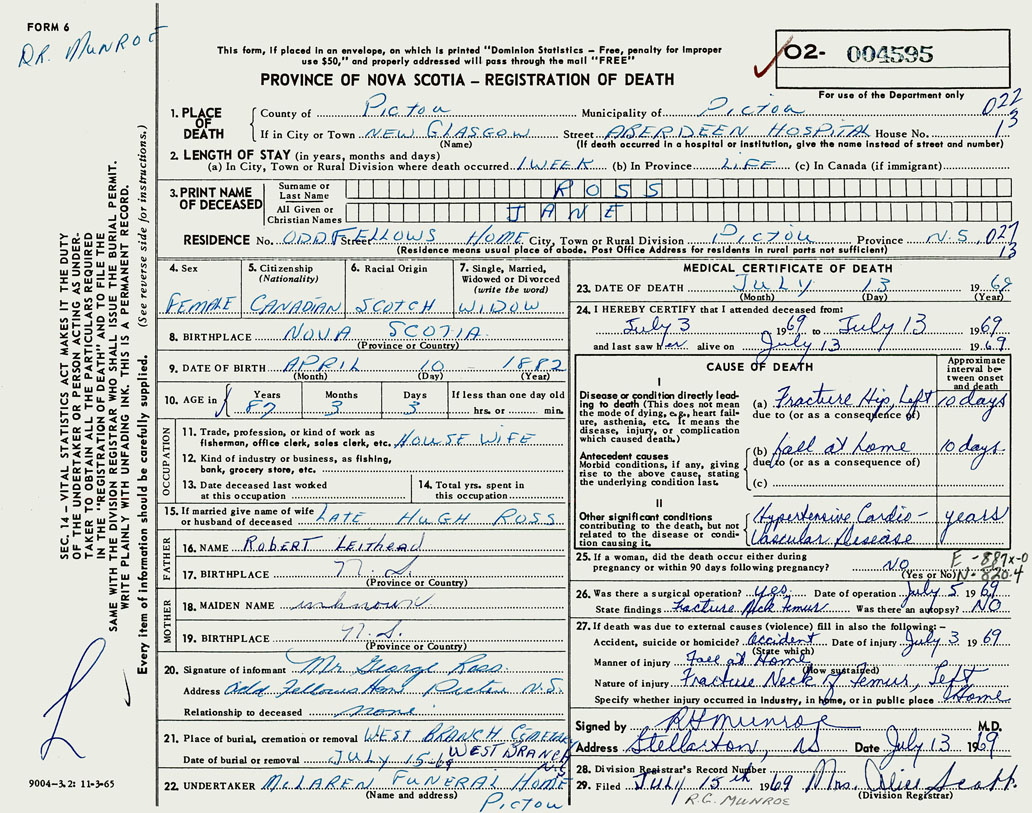 FORM 6
DR. MUNROE
This form, if placed in an envelope, on which is printed "Dominion Statistics – Free, penalty for improper
use $50," and properly addressed will pass through the mail "FREE"
PROVINCE OF NOVA SCOTIA – REGISTRATION OF DEATH
O2- 004595
For use of the Department only
022
13
1. PLACE OF DEATH
County of Pictou Municipality of Pictou
If in City or Town NEW GLASGOW Street ABERDEEN HOSPITAL House No.
(Name) (If death occurred in a hospital or institution, give the name instead of street and number)
2. LENGTH OF STAY (in years, months and days)
(a) In City, Town or Rural Division where death occurred 1 WEEK (b) In Province LIFE (c) In Canada (if immigrant)
3. PRINT NAME OF DECEASED
Surname or Last Name ROSS
All Given or Christian Names JANE
RESIDENCE No. ODDFELLOWS Street HOME City, Town or Rural Division PICTOU Province N.S. 027
13
(Residence means usual place of abode. Post Office Address for residents in rural parts not sufficient)
4. Sex
FEMALE
5. Citizenship
(Nationality)
CANADIAN
6. Racial Origin
SCOTCH
7. Single, Married,
Widowed or Divorced
(write the word)
WIDOW
8. BIRTHPLACE NOVA SCOTIA
(Province or Country)
9. DATE OF BIRTH APRIL 10 1882
(Month) (Day) (Year)
10. AGE in Years Months Days If less than one day old
87 3 3 hrs. or min.
OCCUPATION
11. Trade, profession, or kind of work as
fisherman, office clerk, sales clerk, etc. HOUSE WIFE
12. Kind of industry or business, as fishing,
bank, grocery store, etc.
13. Date deceased last worked
at this occupation
14. Total yrs. spent in
this occupation
15. If married give name of wife
or husband of deceased LATE HUGH ROSS
FATHER
16. NAME ROBERT LEITHEAD
17. BIRTHPLACE N.S.
(Province or Country)
MOTHER
18. MAIDEN NAME unknown
19. BIRTHPLACE N.S.
(Province or Country)
20. Signature of informant Mr George Ross
Address Odd Fellows Home Pictou N.S.
Relationship to deceased none
21. Place of burial, cremation or removal WEST BRANCH CEMETERY
WEST BRANCH
N.S.
Date of burial or removal JULY 15-69
22. UNDERTAKER McLAREN FUNERAL HOME
(Name and address) PICTOU
MEDICAL CERTIFICATE OF DEATH
23. DATE OF DEATH JULY 13 1969
(Month) (Day) (Year)
24. I HEREBY CERTIFY that I attended deceased from:
July 3 1969 to July 13 1969
and last saw her alive on July 13 1969
CAUSE OF DEATH
Approximate
interval be-
tween onset
and death
I
Disease or condition directly lead-
ing to death (This does not mean
the mode of dying, e.g., heart fail-
ure, asthenia, etc. It means the
disease, injury, or complication
which caused death.)
(a) Fracture Hip, Left 10 days
due to (or as a consequence of)
Antecedent causes
Morbid conditions, if any, giving
rise to the above cause, stating
the underlying condition last.
(b) fall at home 10 days
due to (or as a consequence of)
(c)
II
Other significant conditions
contributing to the death, but not
related to the disease or condi-
tion causing it.
Hypertensive Cardio- years
Vascular Disease
25. If a woman, did the death occur either during
pregnancy or within 90 days following pregnancy? NO
(Yes or No)
E-887X-0
N-820.4
26. Was there a surgical operation? yes. Date of operation July 5 1969
State findings Fracture Neck Femur Was there an autopsy? NO
27. If death was due to external causes (violence) fill in also the following:–
Accident, suicide or homicide? accident Date of injury July 3 1969
(State which)
Manner of injury Fall at Home
(How sustained)
Nature of injury Fracture Neck of Femur, Left
Specify whether injury occurred in industry, in home, or in public place Home
Signed by RH Munroe M.D.
Address Stellarton, NS Date July 13 1969
28. Division Registrar's Record Number
29. Filed July 15th 1969 Mrs. Alice Scott.
(Division Registrar)
R.G. MUNROE
SEC. 14 – VITAL STATISTICS ACT MAKES IT THE DUTY
OF THE UNDERTAKER OR PERSON ACTING AS UNDER-
TAKER TO OBTAIN ALL THE PARTICULARS REQUIRED
IN THE "REGISTRATION OF DEATH" AND TO FILE THE
SAME WITH THE DIVISION REGISTRAR WHO SHALL ISSUE THE BURIAL PERMIT.
WRITE PLAINLY WITH UNFADING INK. THIS IS A PERMANENT RECORD.
Every item of information should be carefully supplied. (See reverse side for instructions.)
9004-3.2: 11-3-65